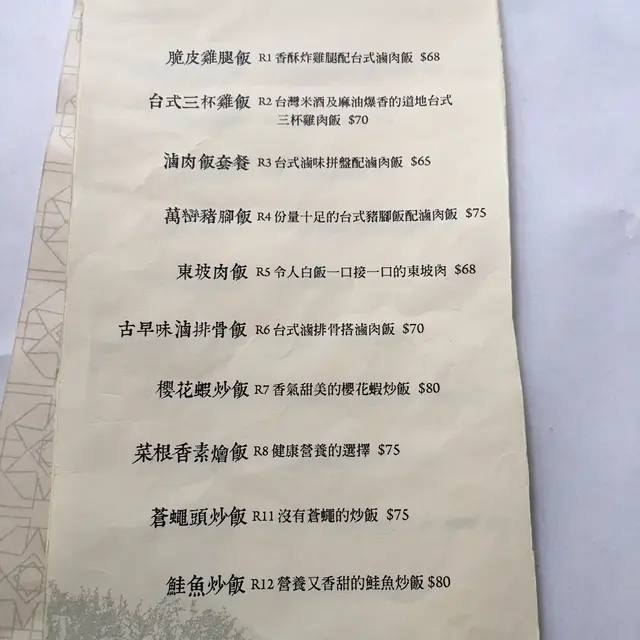 脆皮雞腿飯 R1 香酥炸雞腿配台式滷肉飯 $68
台式三杯雞飯 R2 台灣米酒及麻油爆香的道地台式
三杯雞肉飯 $70
滷肉飯套餐 R3 台式滷味拼盤配滷肉飯 $65
萬巒豬腳飯 R4 份量十足的台式豬腳飯配滷肉飯 $75
東坡肉飯 R5 令人白飯一口接一口的東坡肉 $68
古早味滷排骨飯 R6 台式滷排骨搭滷肉飯 $70
櫻花蝦炒飯 R7 香氣甜美的櫻花蝦炒飯 $80
菜根香素燴飯 R8 健康營養的選擇 $75
蒼蠅頭炒飯 R11 沒有蒼蠅的炒飯 $75
鮭魚炒飯 R12 營養又香甜的鮭魚炒飯 $80